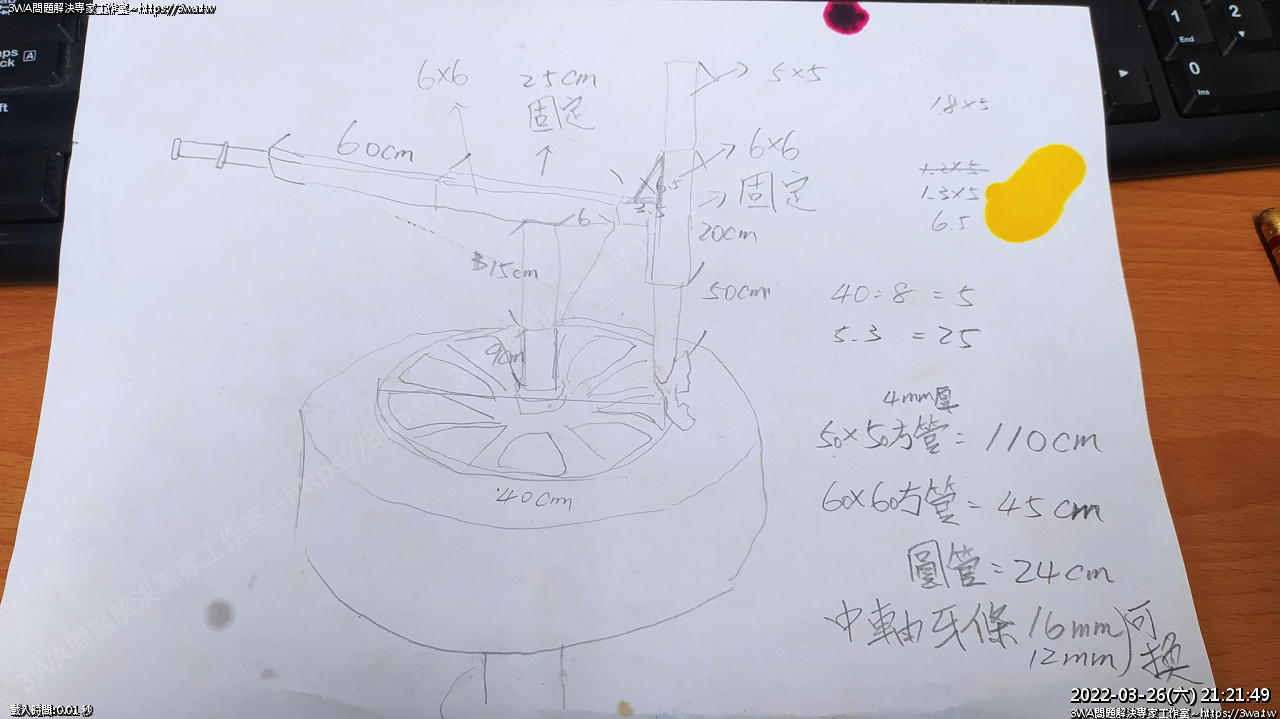 3WA問題解決專家工作室~https://3wa.tw
6×6
25cm
固定
5×5
1.8×5
60cm
6×6
固定
1.2×5
1.3×5
6.5
6
20cm
15cm
50cm
40÷8 =5
5.3 =25
9cm
4mm厚
50×50方管=110cm
60×60方管=45cm
40cm
圓管=24cm
中軸牙條 16mm
12mm
可換
載入時間:0.01 秒
2022-03-26(六) 21:21:49
3WA問題解決專家工作室~https://3wa.tw